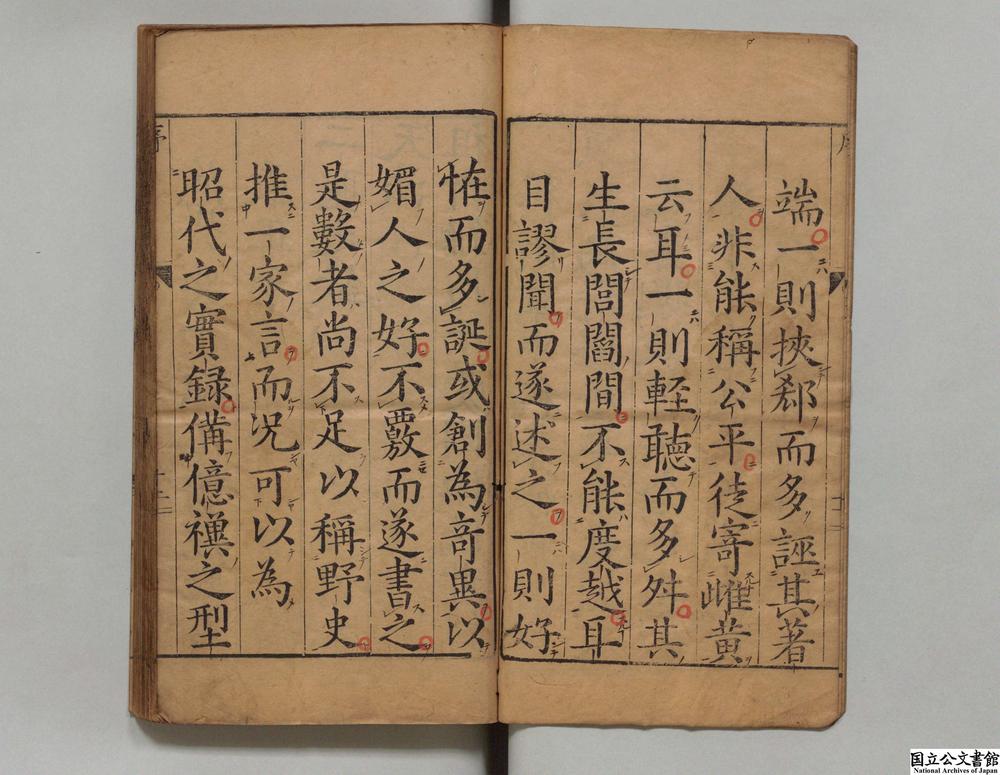 端一則挾郄而多誣其著
人非能稱公平徒寄雌黄
云耳一則輕聽而多舛其
生長閭閻間不能度越耳
目謬聞而遂述之一則好
恠而多誕或創為竒異以
媚人之好不覈而遂書之
是數者尚不足以稱野史
推一家言而况可以為
昭代之實録備億禩之型
序
国立公文書館
National Archives of Japan